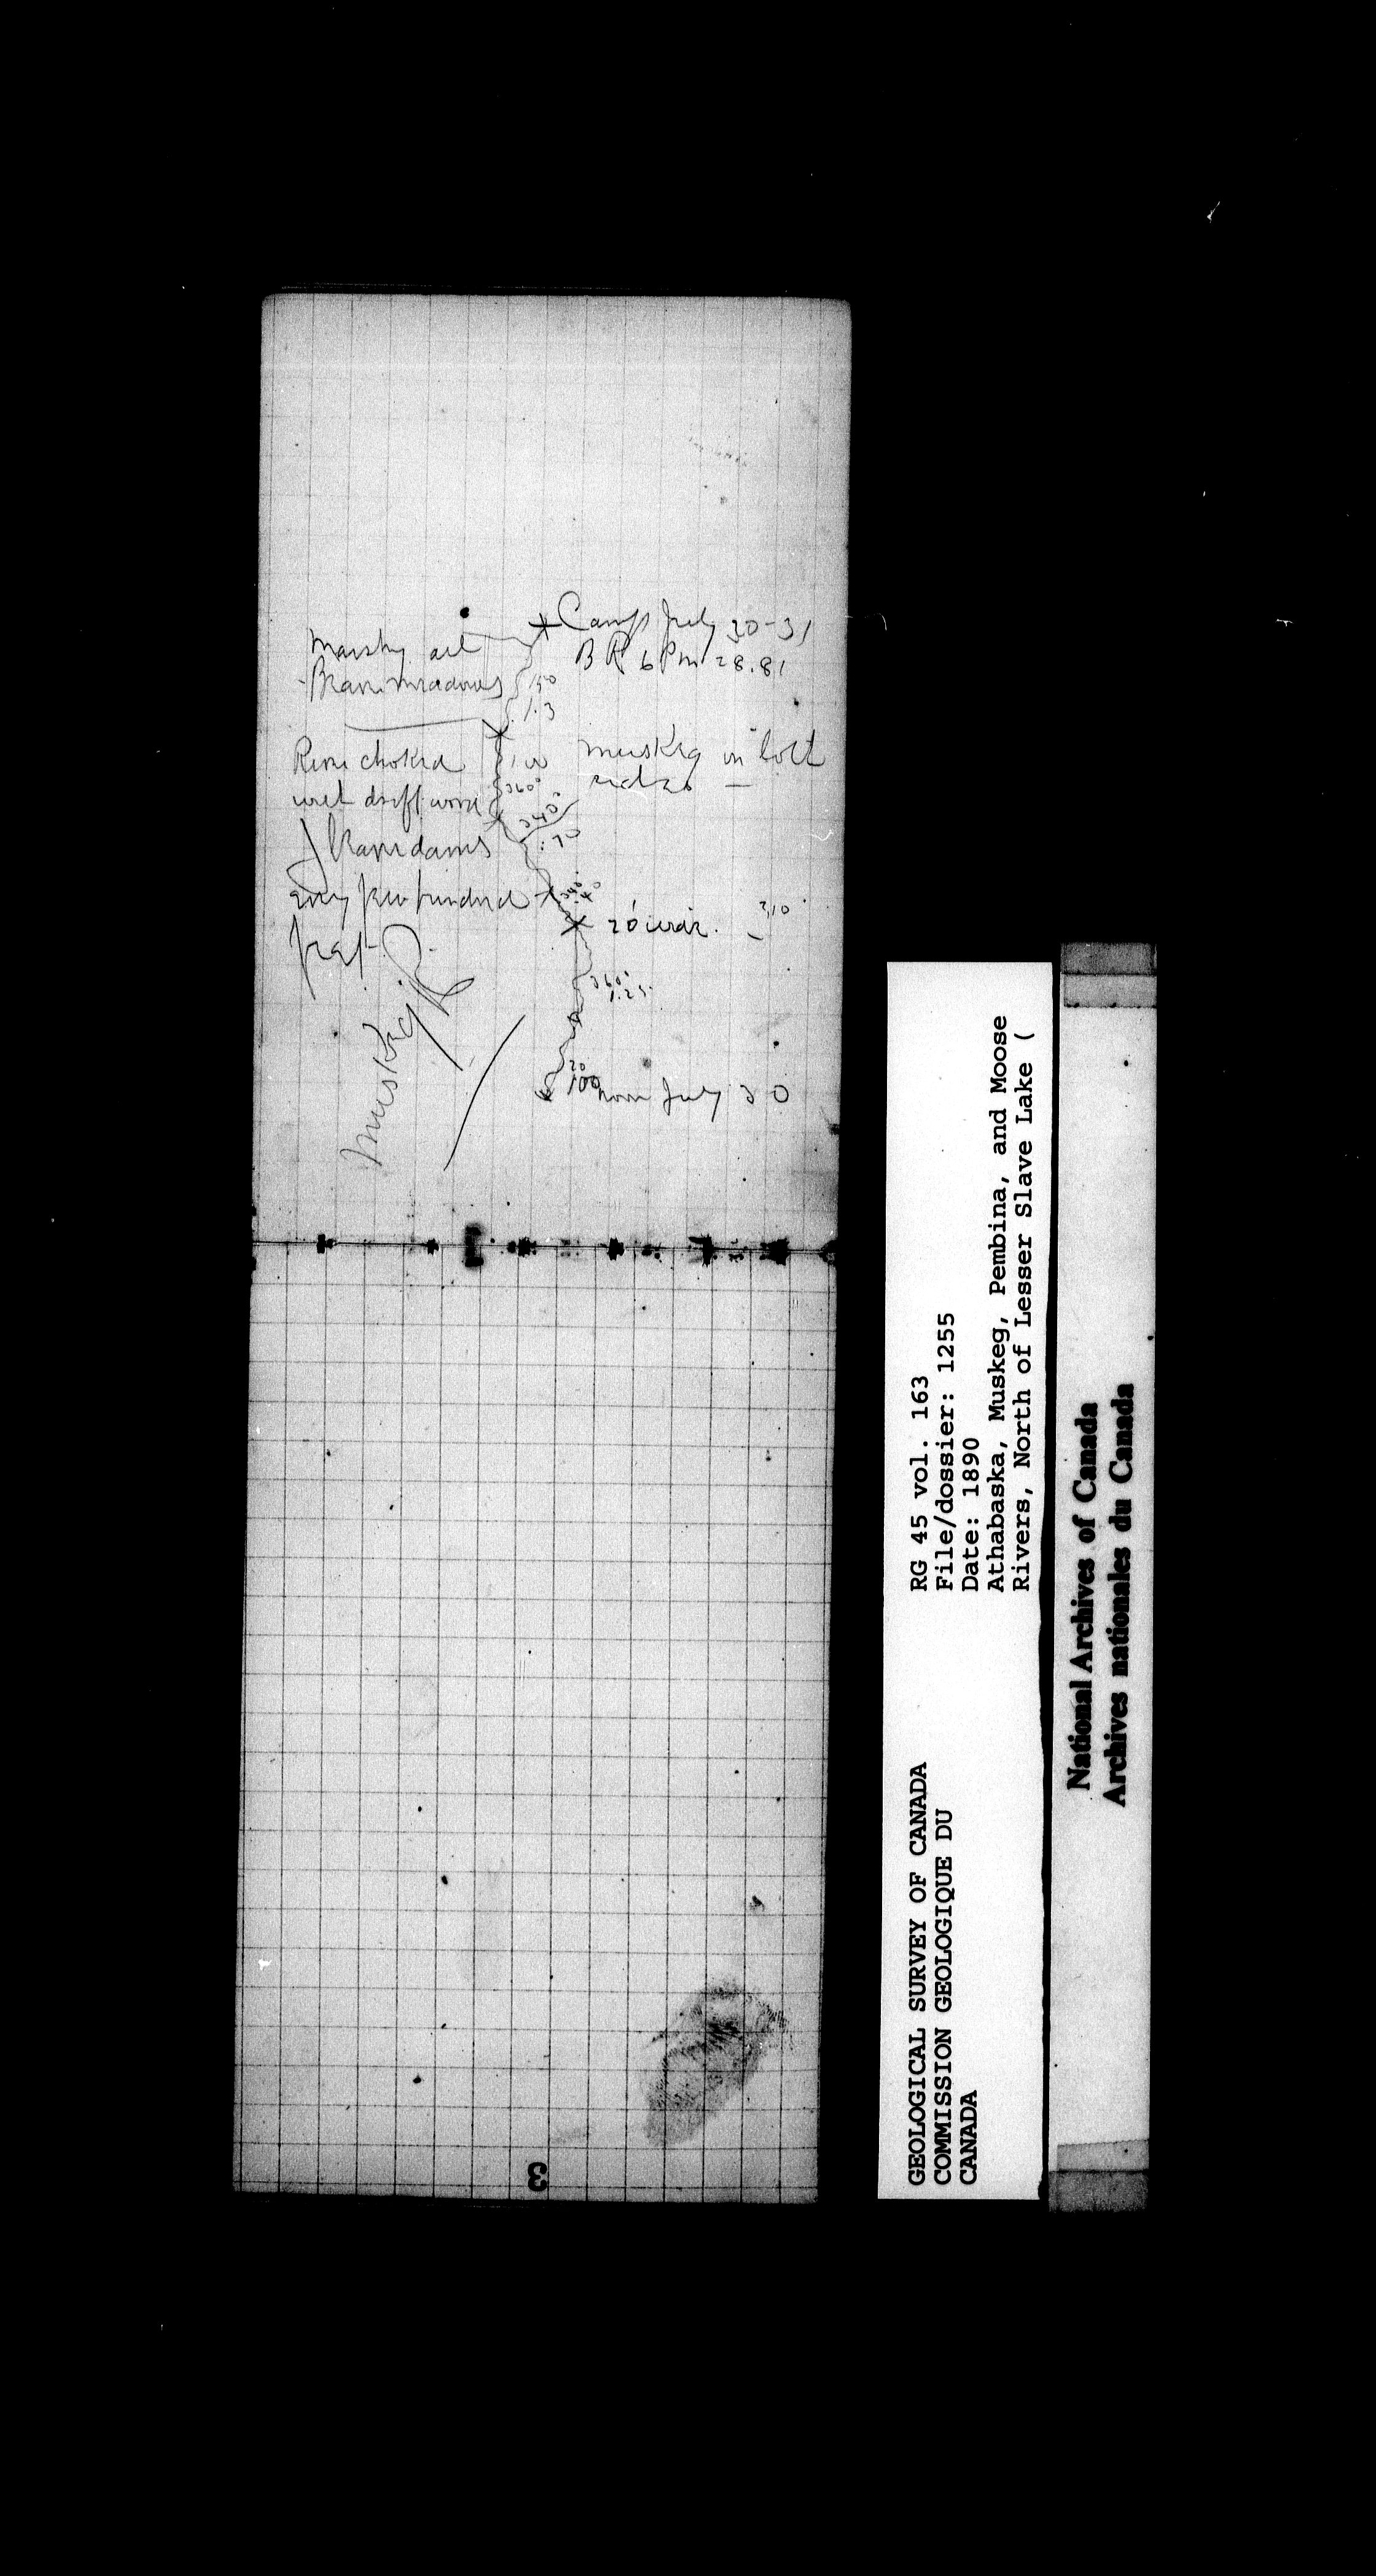 Camp July 30-31
B R 6 Pm 28.81
Marshy and
Beaver meadows
150
1.3
River choked
with driftwood
100
360°
muskeg on both
sides —
340°
.70
Beaver dams
every few hundred
feet
340°
.40
20' wide.
360°
1.25
Muskeg R
20
100
noon July 30
3
RG 45 vol. 163
File/dossier: 1255
Date: 1890
Athabaska, Muskeg, Pembina, and Moose
Rivers, North of Lesser Slave Lake (
GEOLOGICAL SURVEY OF CANADA
COMMISSION GEOLOGIQUE DU
CANADA
National Archives of Canada
Archives nationales du Canada